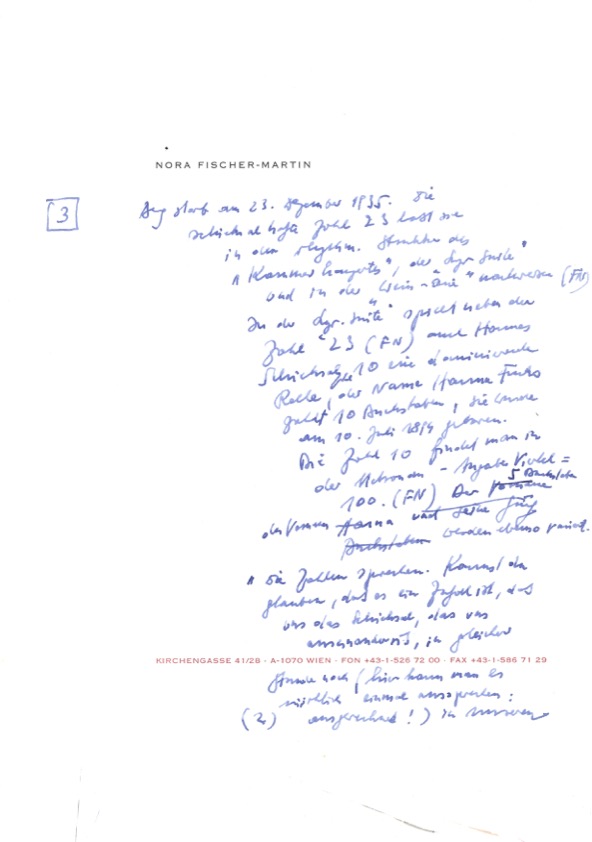 NORA FISCHER-MARTIN
3
Berg starb am 23. Dezember 1935. Die
schicksalhafte Zahl 23 lässt sie
in den rhythm. Strukturen des
"Kammerkonzertes", der "Lyr. Suite"
und in der Wein-Arie "nachweisen (FN)
In der "Lyr. Suite" spielt neben der
Zahl 23 (FN) auch Hannas
Schicksalszahl 10 eine dominierende
Rolle, der Name Hanna Fuchs
zählt 10 Buchstaben, sie wurde
am 10. Juli 1894 geboren.
Die Zahl 10 findet man in
der Metronom-Angabe Viertel =
5 Buchstaben
100. (FN) Der Vorname
des Vornamen Hanna und seine fünf
Buchstaben werden ebenso variiert.
"Die Zahlen sprechen. Kannst du
glauben, daß es ein Zufall ist, daß
uns das Schicksal, das uns
in gleicher
KIRCHENGASSE 41/28 · A-1070 WIEN · FON +43-1-526 72 00 · FAX +43-1-586 71 29
Stunde noch (hier kann man es
wirklich einmal aussprechen:
(2) ausgerechnet!) in unseren